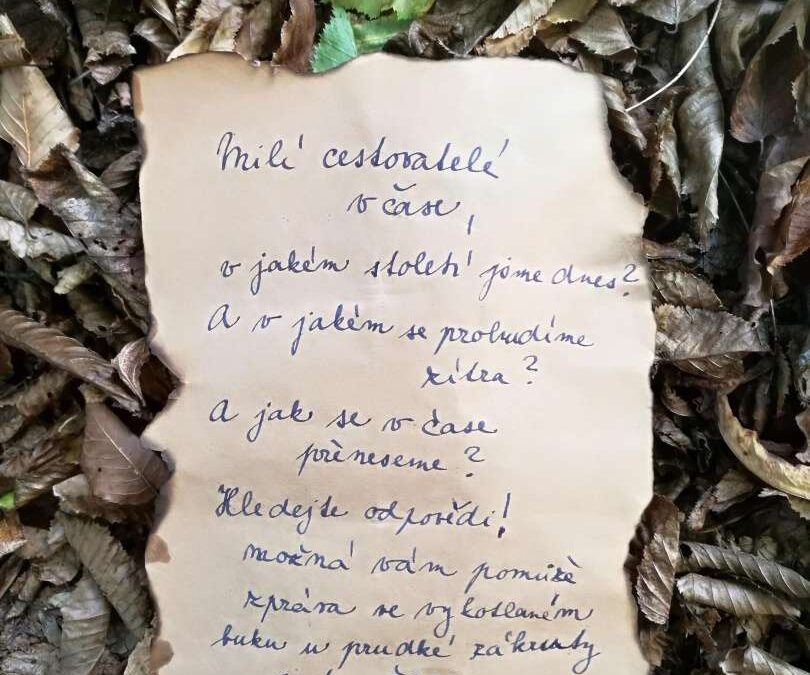 Milí cestovatelé
v čase,
v jakém století jsme dnes?
A v jakém se probudíme
zítra?
A jak se v čase
přeneseme?
Hledejte odpovědi!
možná vám pomůže
zpráva ve vykotlaném
buku u prudké zákruty